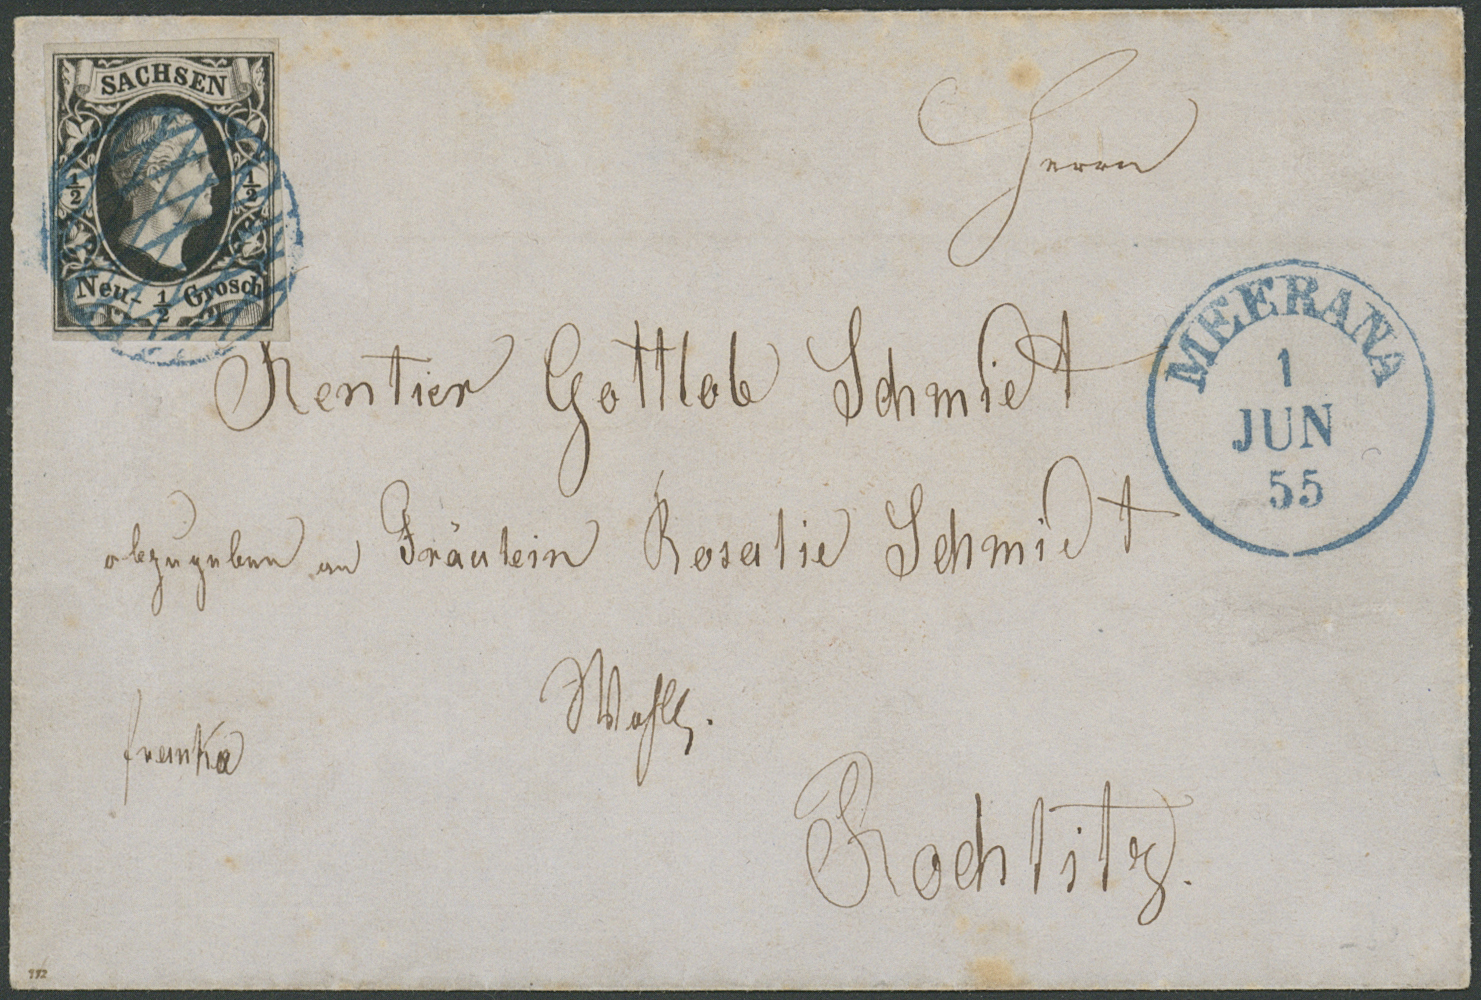 SACHSEN
1/2 1/2
Neu- 1/2 Grosch
Herrn
MEERANA
1
JUN
55
Rentier Gottlob Schmidt
abzugeben an Fräulein Rosalie Schmidt
Rochlitz.